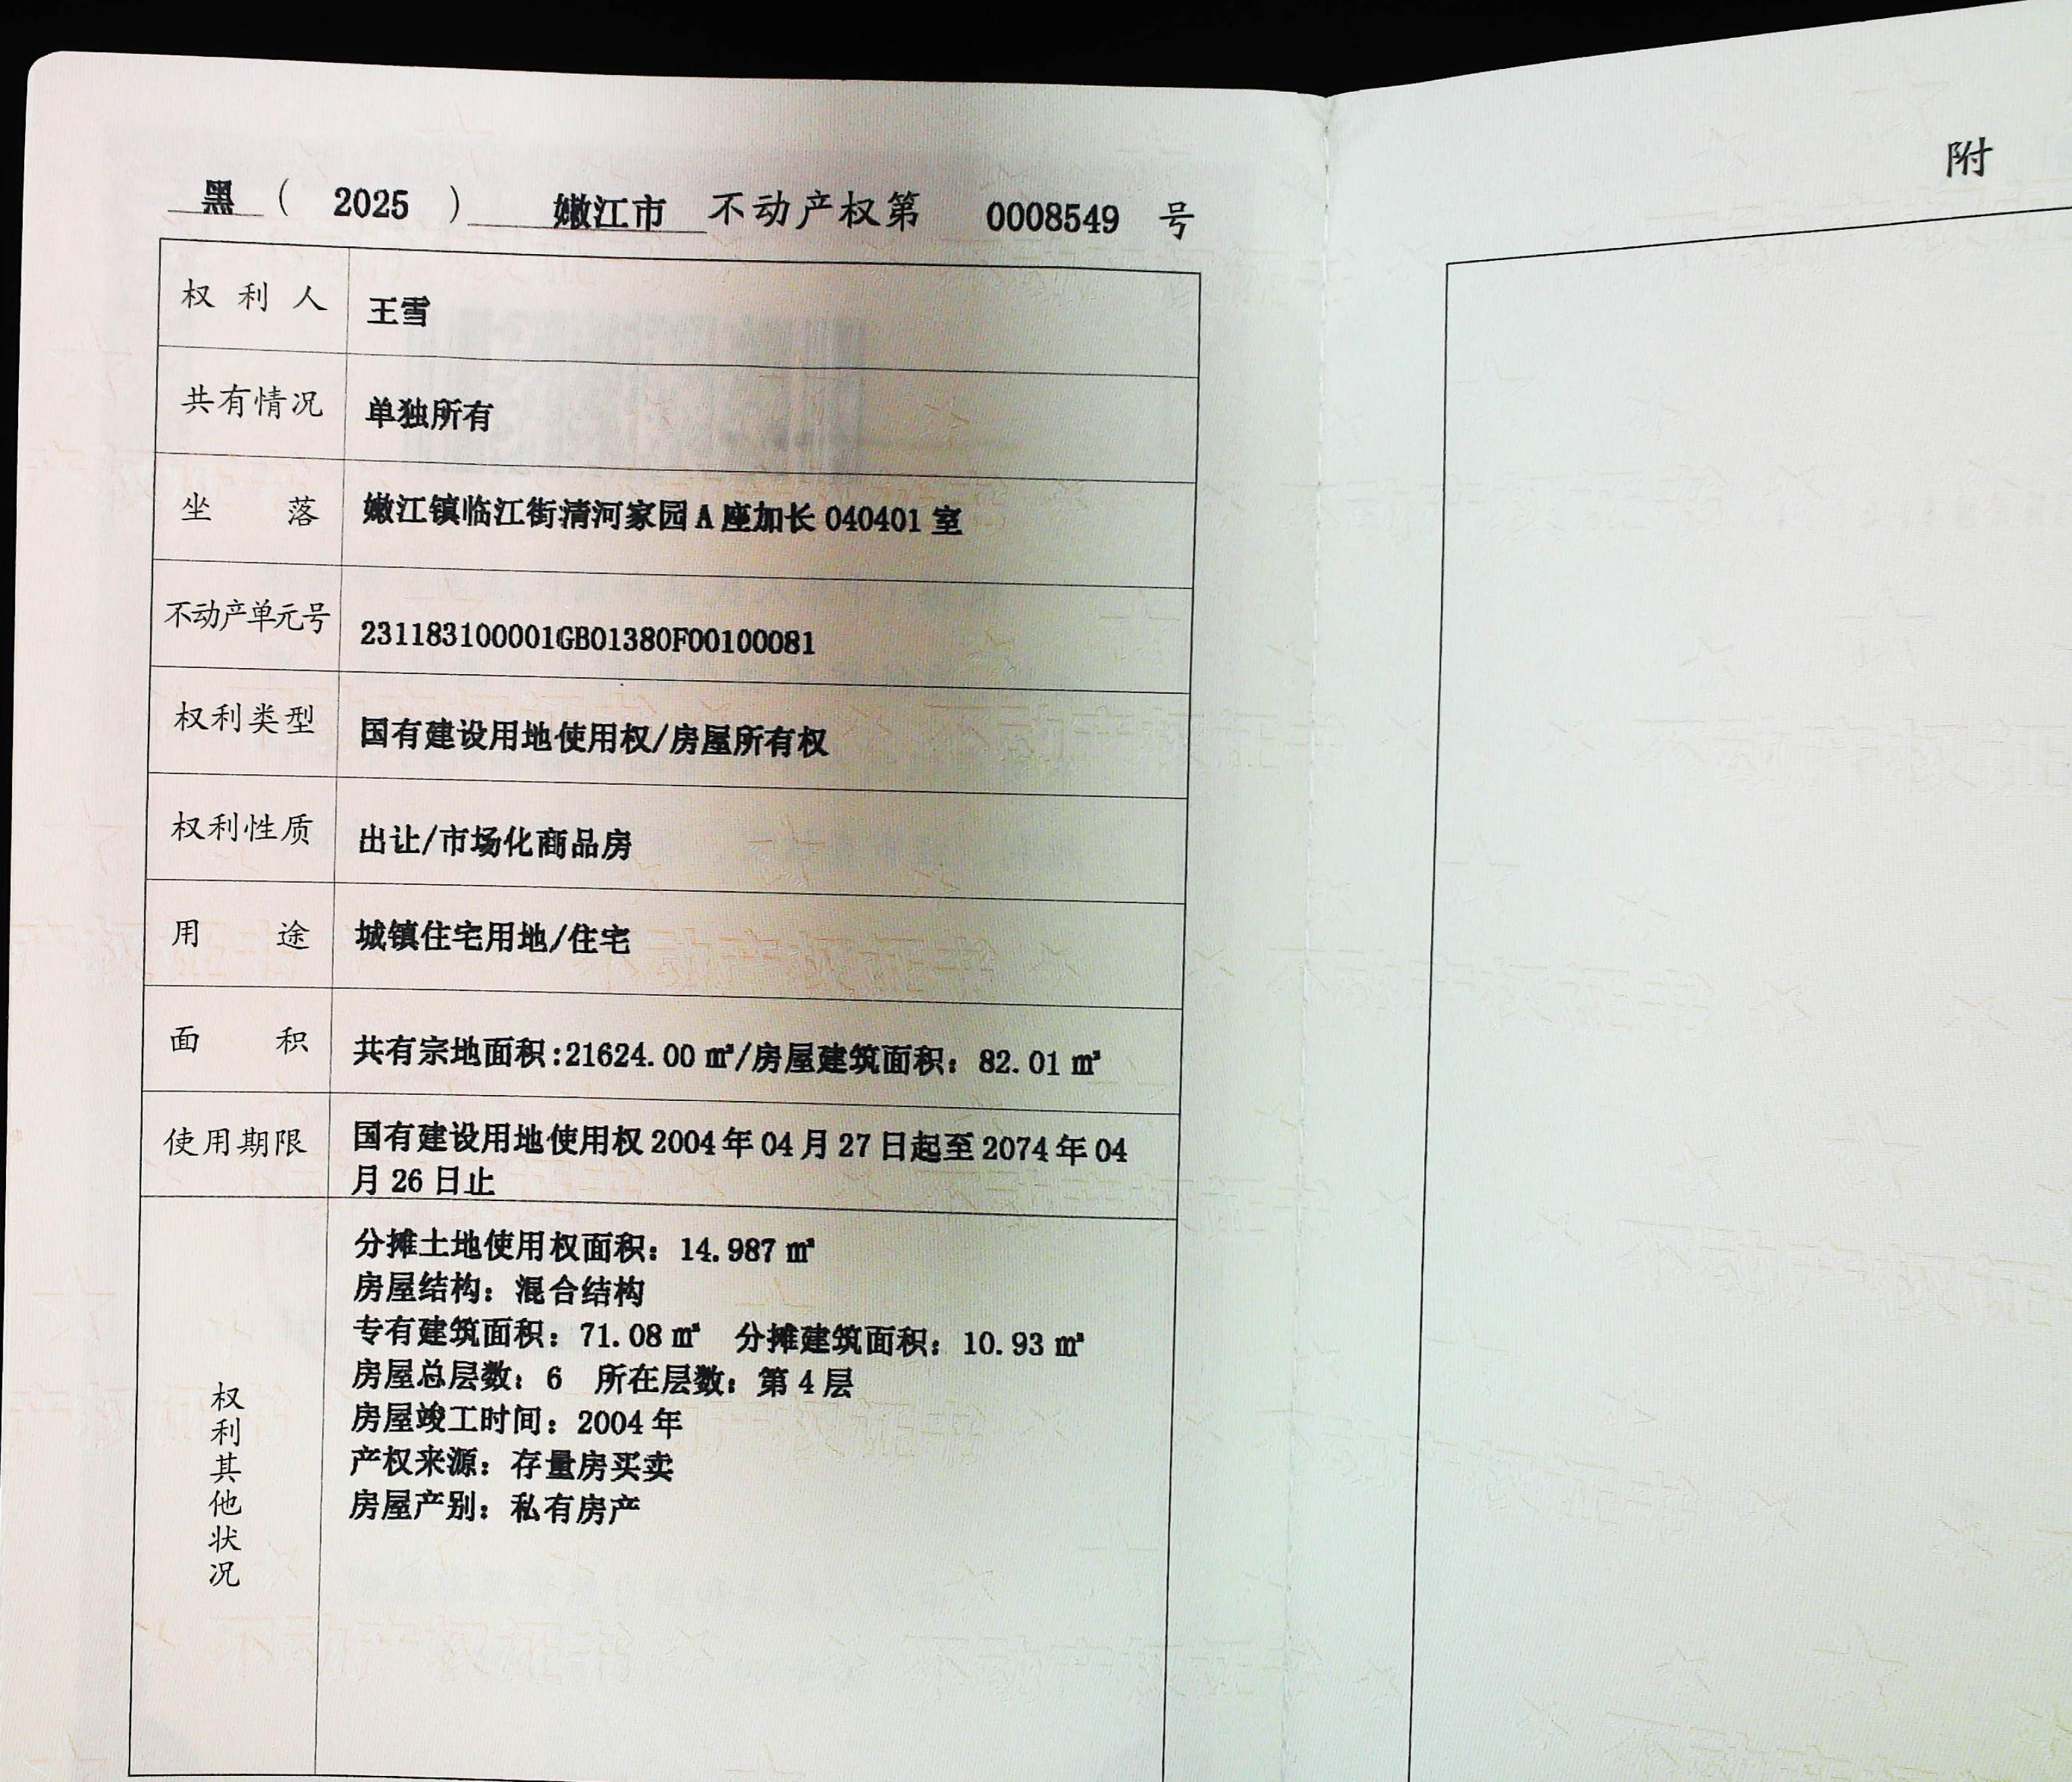 黑 ( 2025 ) 嫩江市 不动产权第 0008549 号
附
权利人 王雪
共有情况 单独所有
坐落 嫩江镇临江街清河家园 A 座加长 040401 室
不动产单元号 231183100001GB01380F00100081
权利类型 国有建设用地使用权/房屋所有权
权利性质 出让/市场化商品房
用途 城镇住宅用地/住宅
面积 共有宗地面积:21624.00 ㎡/房屋建筑面积：82.01 ㎡
使用期限 国有建设用地使用权 2004 年 04 月 27 日起至 2074 年 04
月 26 日止
权利其他状况
分摊土地使用权面积：14.987 ㎡
房屋结构：混合结构
专有建筑面积：71.08 ㎡ 分摊建筑面积：10.93 ㎡
房屋总层数：6 所在层数：第 4 层
房屋竣工时间：2004 年
产权来源：存量房买卖
房屋产别：私有房产